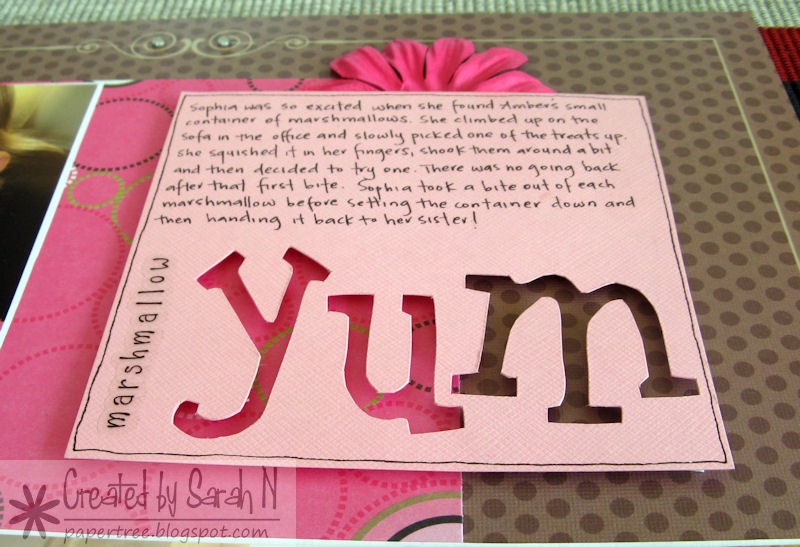 Sophia was so excited when she found Amber's small
container of marshmallows. She climbed up on the
sofa in the office and slowly picked one of the treats up.
She squished it in her fingers, shook them around a bit
and then decided to try one. There was no going back
after that first bite. Sophia took a bite out of each
marshmallow before setting the container down and
then handing it back to her sister!
marshmallow
yum
Created by Sarah N
papertree.blogspot.com